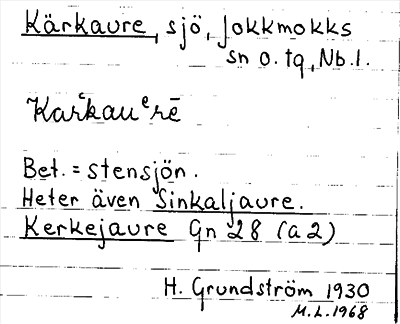 Kärkaure, sjö, Jokkmokks
sn o. tq, Nb.l.
Kar̆kauᵉrē
Bet. = stensjön.
Heter även Sinkaljaure.
Kerkejaure Gn 28 (a2)
H. Grundström 1930
M.L. 1968